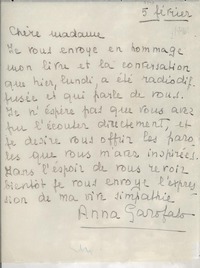 5 février
Chère madame
Je vous envoye en hommage
mon livre et la conversation
que hier, lundi a été radiodif-
fusée et qui parle de vous.
Je n'éspère pas que vous avez
pu l'écouter directement, et
je desire vous offrir les paro
les que vous m'avez inspirées.
Dans l'éspoir de vous revoir
bientôt je vous envoye l'expres
sion de ma vive simpathie
Anna Garofalo